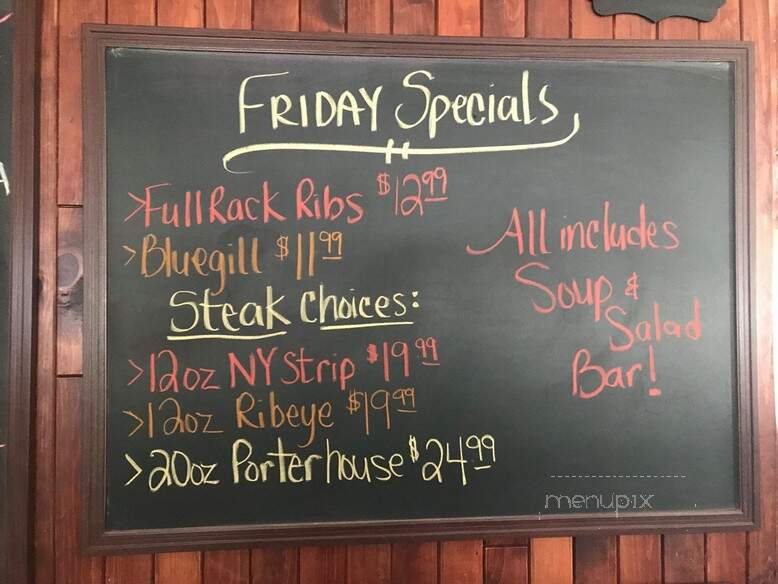 FRIDAY Specials
>Full Rack Ribs $12.99
>Bluegill $11.99
Steak Choices:
>12oz NY Strip $19.99
>12oz Ribeye $19.99
>20oz Porterhouse $24.99
All includes
Soup &
Salad
Bar!
menupix